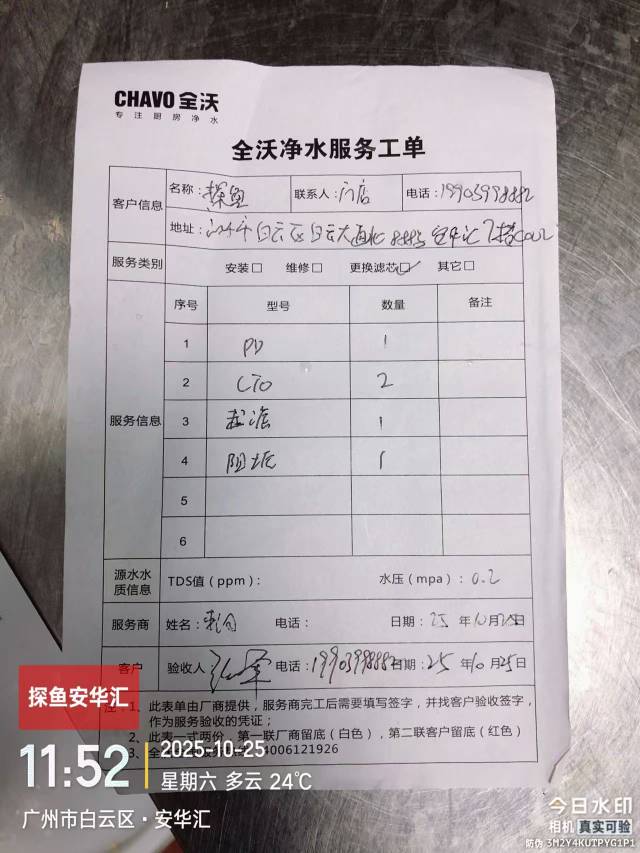 CHAVO 全沃
专注厨房净水
全沃净水服务工单
客户信息 名称：探鱼 联系人：门店 电话：19903998882
地址：广州市白云区白云大道北 号 安华汇7楼
服务类别 安装□ 维修□ 更换滤芯☑ 其它□
服务信息 序号 型号 数量 备注
1 PP 1
2 CTO 2
3 1
4 阻垢 1
5
6
源水水质信息 TDS值（ppm）： 水压（mpa）：0.2
服务商 姓名： 电话： 日期：25年10月25日
客户 验收人 电话：19903998882 日期：25年10月25日
注：1、此表单由厂商提供，服务商完工后需要填写签字，并找客户验收签字，
作为服务验收的凭证；
2、此表一式两份，第一联厂商留底（白色），第二联客户留底（红色）
3、全 4006121926
探鱼安华汇
11:52
2025-10-25
星期六 多云 24℃
广州市白云区·安华汇
今日水印
相机 真实可验
防伪 3M2Y4KUTPYG1P1